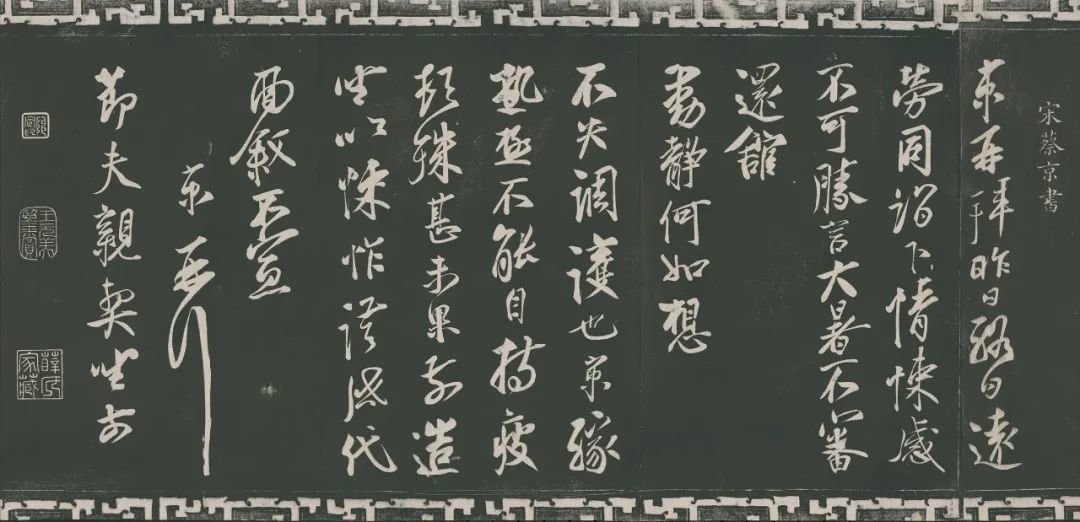 宋蔡京書
京再拜昨日終日遠
勞同詣下情悚感
不可勝言大暑不審
還舘
動靜何如想
不失調護也京緣
熱極不能自持疲
頓殊甚未果前造
坐以悚怍謹啓代
面敘不宣
京再拜
節夫親契坐前
薛氏家藏